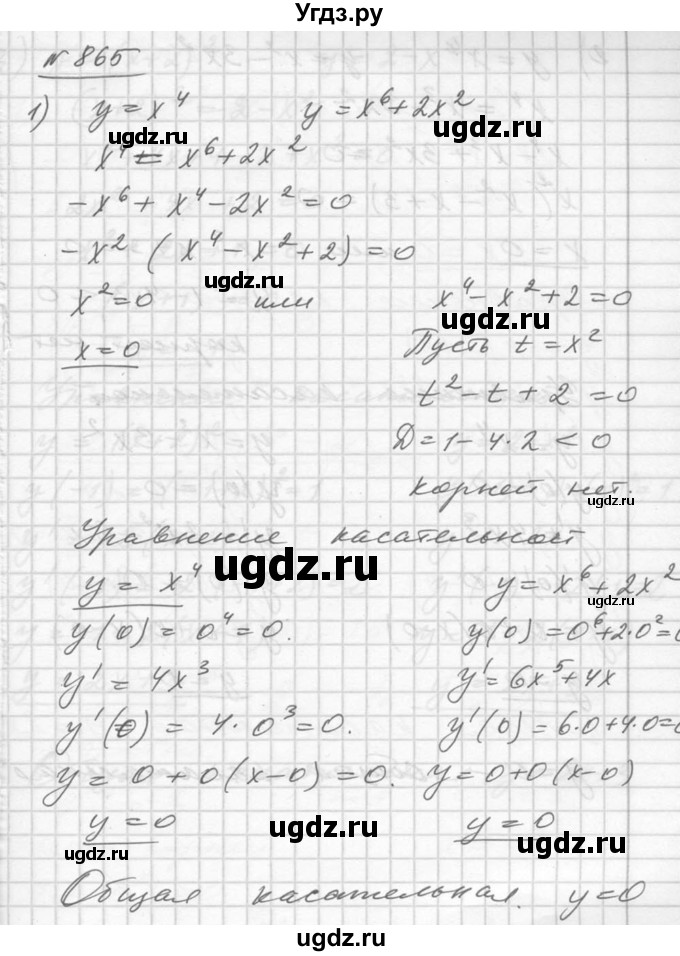 Угдз.ру
№ 865
1) y = x⁴ y = x⁶ + 2x²
ugdz.ru ugdz.ru
x⁴ = x⁶ + 2x²
-x⁶ + x⁴ - 2x² = 0
-x² (x⁴ - x² + 2) = 0
ugdz.ru
x² = 0 или x⁴ - x² + 2 = 0
ugdz.ru
x = 0 Пусть t = x²
t² - t + 2 = 0
Д = 1 - 4·2 < 0
корней нет.
ugdz.ru
Уравнение касательной
ugdz.ru
y = x⁴ y = x⁶ + 2x²
ugdz.ru
y(0) = 0⁴ = 0. y(0) = 0⁶ + 2·0² = 0
y' = 4x³ y' = 6x⁵ + 4x
y'(0) = 4·0³ = 0. y'(0) = 6·0 + 4·0 = 0
y = 0 + 0(x-0) = 0. y = 0 + 0(x-0)
y = 0 y = 0
ugdz.ru ugdz.ru ugdz.ru
Общая касательная. y = 0
ugdz.ru